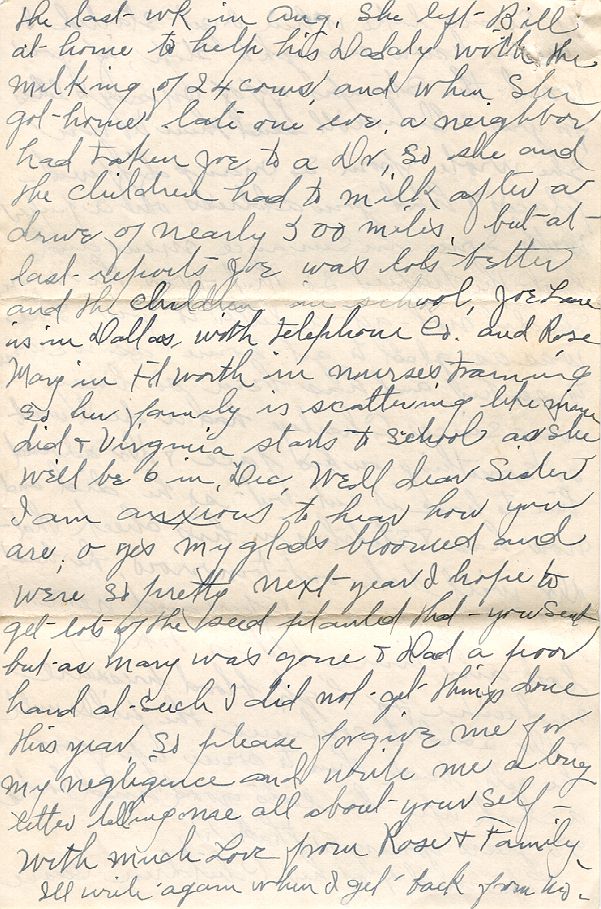 the last wk in Aug. She left Bill
at home to help his Daddy with the
milking of 24 cows, and when She
got home late one eve, a neighbor
had taken Joe to a Dr, So she and
the children had to milk after a
drive of nearly 500 miles, but at
last reports Joe was lots better
and the children in school, Joe
is in Dallas, with Telephone Co. and Rose
Mary in Ft Worth in nurses Training
So her family is scattering like mine
did & Virginia starts to School as She
well be 6 in, Dec, Well dear Sister
I am anxious to hear how you
are, o yes my glads bloomed and
were so pretty next year I hope to
get lots of the seed planted that you sent
but as Mary was gone & I had a poor
hand at such I did not get things done
this year so please forgive me for
my negligence and write me a long
letter telling me all about yourself –
With much Love from Rose & Family
Ill write again when I get back from